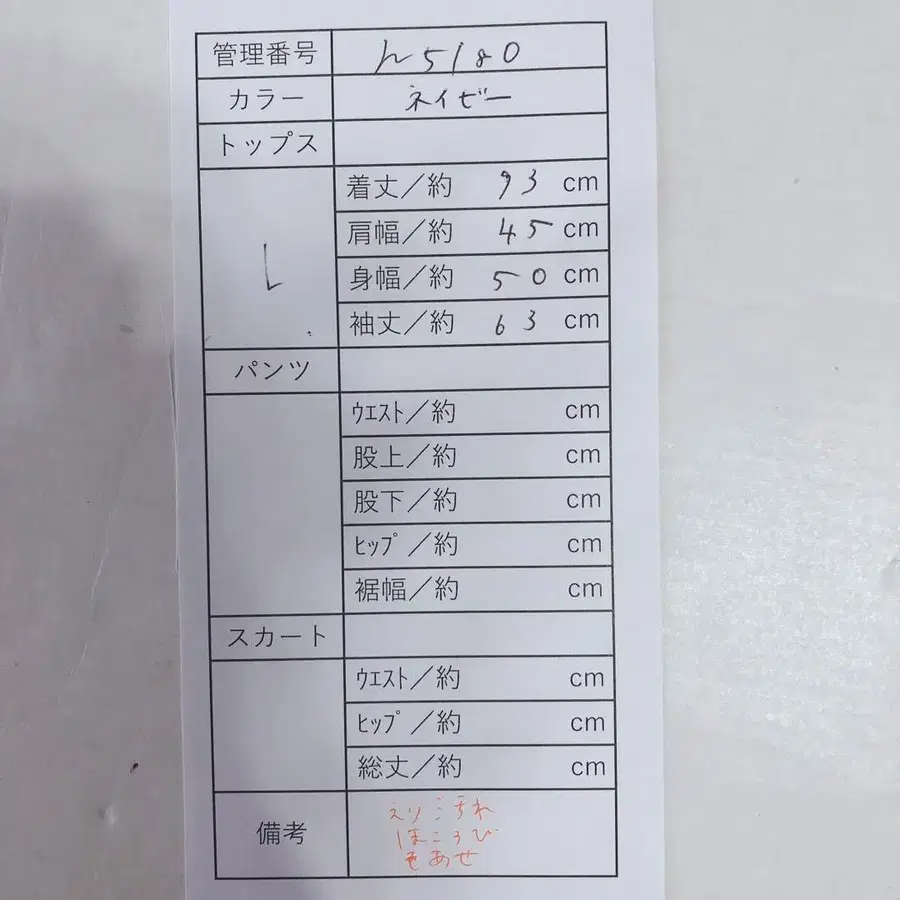 管理番号 h5180
カラー ネイビー
トップス
L
着丈／約 93 cm
肩幅／約 45 cm
身幅／約 50 cm
袖丈／約 63 cm
パンツ
ｳｴｽﾄ／約 cm
股上／約 cm
股下／約 cm
ﾋｯﾌﾟ／約 cm
裾幅／約 cm
スカート
ｳｴｽﾄ／約 cm
ﾋｯﾌﾟ／約 cm
総丈／約 cm
備考
えり
ほころび
あせ